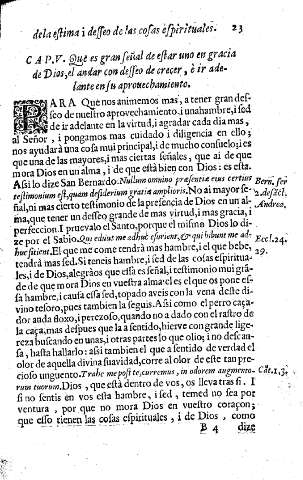 de la estima i desseo de las cosas espirituales. 23
CAP. V. Què es gran señal de estar uno en gracia
de Dios, el andar con desseo de creçer, è ir ade-
lante en su aprovechamiento.
PARA Que nos animemos mas, a tener gran des-
seo de nuestro aprovechamiento, i una hambre, i sed
de ir adelante en la virtud, i agradar cada dia mas,
al Señor, i pongamos mas cuidado i diligencia en ello;
nos ayudarà una cosa mui principal, i de mucho consuelo; i es
que una de las mayores, i mas ciertas señales, que ai de que
mora Dios en un alma, i de que està bien con Dios: es esta.
Asi lo dize San Bernardo. Nullum omnino præsentiæ eius certius
testimonium est, quam desiderium gratiæ amplioris. No ai mayor se-
ñal, ni mas cierto testimonio de la presencia de Dios en un al-
ma, que tener un desseo grande de mas virtud, i mas gracia, i
perfeccion. I pruevalo el Santo, porque el mismo Dios lo di-
ze por el Sabio. Qui edunt me adhuc esurient, & qui bibunt me ad-
huc sitient. El que me come tendrà mas hambre, i el que bebe,
tendrà mas sed. Si teneis hambre, i sed de las cosas espiritua-
les, i de Dios, alegràos que essa es señal, i testimonio mui grã-
de de que mora Dios en vuestra alma: el es el que os pone es-
sa hambre, i causa essa sed, topado aveis con la vena deste di-
vino tesoro, pues tambien la seguis. Asi como el perro caça-
dor anda floxo, i perezoso, quando no a dado con el rastro de
la caça, mas despues que la a sentido, hierve con grande lige-
reza buscando en unas, i otras partes lo que oliò; i no descan-
sa, hasta hallarlo: asi tambien el que a sentido de verdad el
olor de aquella divina suavidad, corre al olor de este tan pre-
cioso unguento. Trahe me post te, curremus, in odorem unguento-
rum tuorum. Dios, que està dentro de vos, os lleva tras si. I
si no sentis en vos esta hambre, i sed, temed no sea por
ventura, por que no mora Dios en vuestro coraçon;
que esso tienen las cosas espirituales, i de Dios, como
B 4 dize
Bern. ser
2. de sãct.
Andrea.
Eccl. 24.
29.
Cãt. 1, 3.